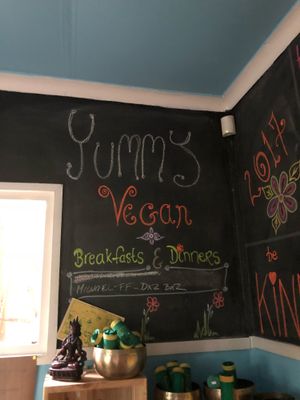 Yummy
Vegan
Breakfasts & Dinners
2017
be
KIN